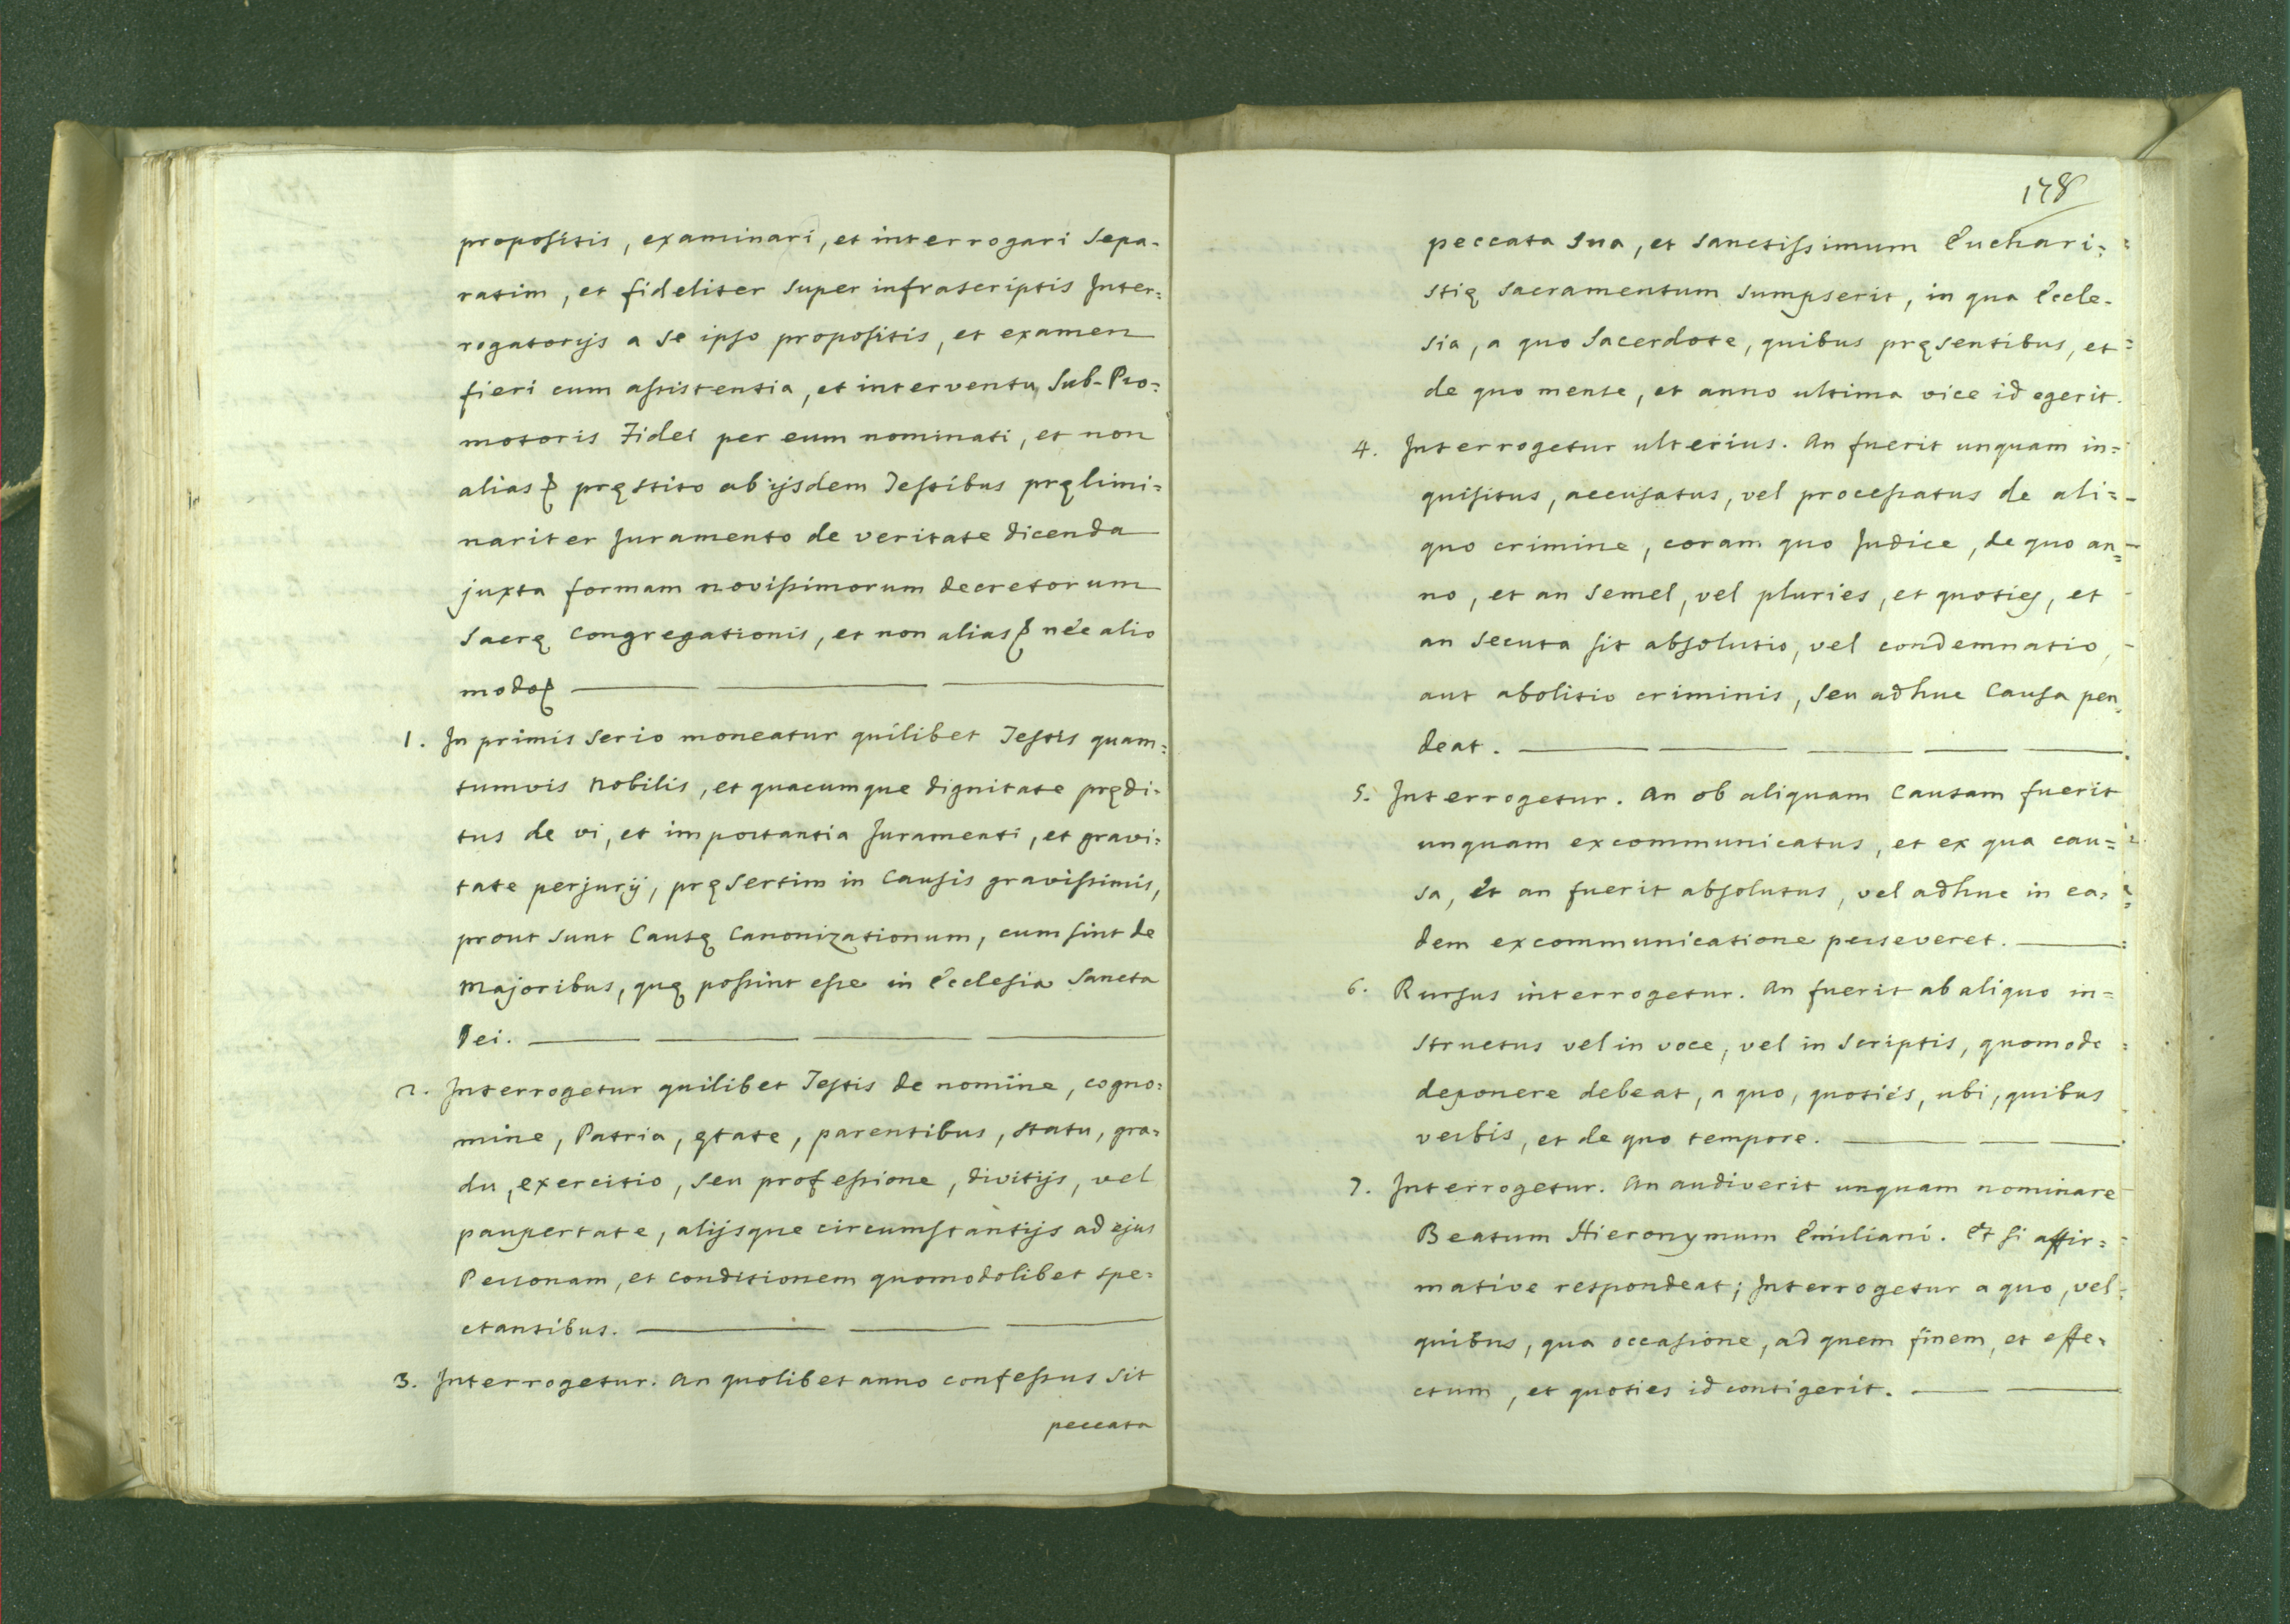 propositis, examinari, et interrogari Sepa-
ratim, et fideliter super infrascriptis Inter=
rogatorijs a se ipso propositis, et examen
fieri cum assistentia, et interventu Sub-Pro=
motoris Fidei per eum nominati, et non
alias pręstito ab ijsdem Testibus pręlimi=
nariter Juramento de veritate dicenda
juxta formam novissimorum decretorum
Sacrę Congregationis, et non alias nèc alio
modo
1. In primis Serio moneatur quilibet Testis quam=
tumvis Nobilis, et quacumque dignitate prędi=
tus de vi, et importantia Juramenti, et gravi=
tate perjurij, pręsertim in Causis gravissimis,
prout sunt Causę Canonizationum, cum sint de
Majoribus, quę possint esse in Ecclesia Sancta
Dei.
2. Interrogetur quilibet Testis de nomine, cogno=
mine, Patria, ętate, parentibus, statu, gra=
du, exercitio, seu professione, divitijs, vel
paupertate, alijsque circumstantijs ad ejus
Personam, et conditionem quomodolibet spe=
ctantibus.
3. Interrogetur. An quolibet anno confessus sit
peccata
178
peccata sua, et sanctissimum Euchari=
stię Sacramentum sumpserit, in qua Eccle-
sia, a quo Sacerdote, quibus pręsentibus, et
de quo mense, et anno ultima vice id egerit.
4. Interrogetur ulterius. An fuerit unquam in=
quisitus, accusatus, vel processatus de ali=
quo crimine, coram quo Judice, de quo an=
no, et an semel, vel pluries, et quoties, et
an secuta sit absolutio, vel condemnatio,
aut abolitio criminis, seu adhuc Causa pen=
deat.
5. Interrogetur. An ob aliquam Causam fuerit
unquam excommunicatus, et ex qua cau=
sa, Et an fuerit absolutus, vel adhuc in ea=
dem excommunicatione perseveret.
6. Rursus interrogetur. An fuerit ab aliquo in=
structus vel in voce, vel in scriptis, quomodo
deponere debeat, a quo, quotiés, ubi, quibus
verbis, et de quo tempore.
7. Interrogetur. An audiverit unquam nominare
Beatum Hieronymum Emiliani. Et si affir=
mative respondeat; Interrogetur a quo, vel
quibus, qua occasione, ad quem finem, et effe=
ctum, et quoties id contigerit.